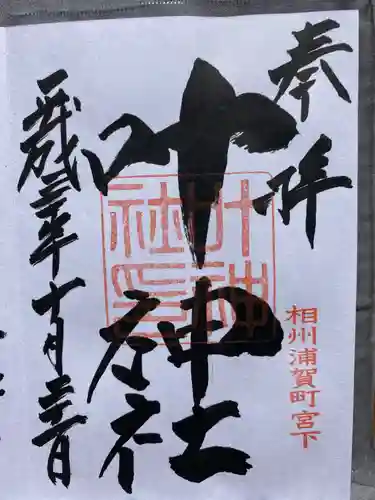 奉拝
叶神社
叶神
社印
相州浦賀町宮下
平成 年十月 日